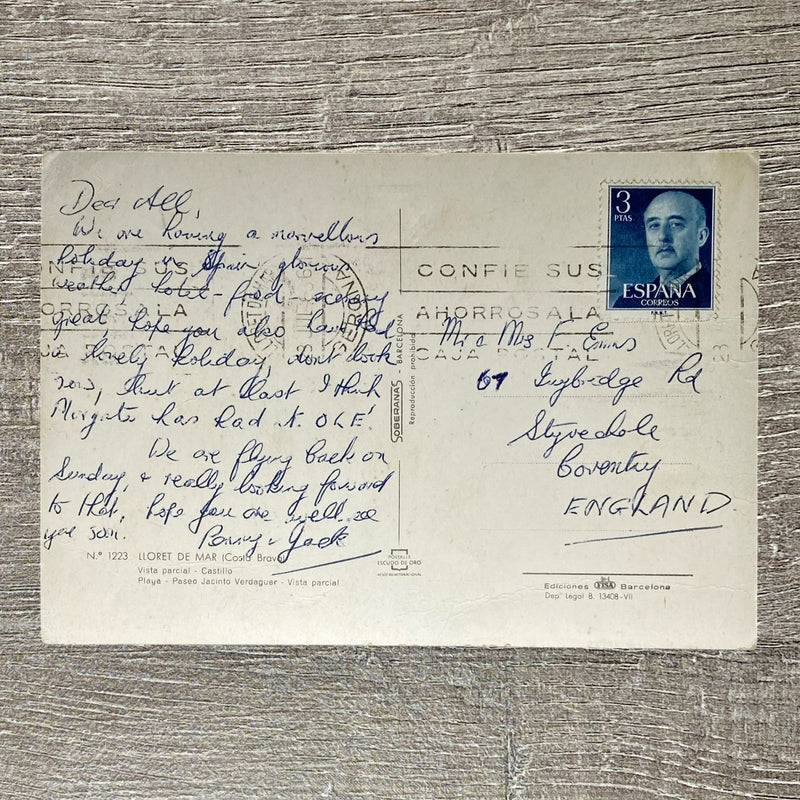 Dear All,
We are having a marvellous
holiday in Spain glorious
weather, hotel - food, scenery
great hope you also have had
a lovely holiday, don't look
now, but at last I think
Margate has had it. OLE!
We are flying back on
Sunday, & really looking forward
to that, hope you are well see
you soon. Penny & Jack
Nº 1223 LLORET DE MAR (Costa Brava)
Vista parcial - Castillo
Playa - Paseo Jacinto Verdaguer - Vista parcial
SOBERANAS - BARCELONA
Reproducción prohibida
POSTALES
ESCUDO DE ORO
3
PTAS
ESPAÑA
CORREOS
F.N.M.T.
CONFIE SUS
AHORROS A LA
CAJA POSTAL
NFIE SUS
ORROS A LA
GERONA
Mr & Mrs F. Emms
67 Rd
Styvechale
Coventry
ENGLAND.
Ediciones FISA Barcelona
Dep. Legal B. 13408-VII